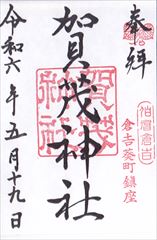 奉拝
伯耆倉吉
倉吉葵町鎮座
賀茂神社
賀茂神社
令和六年五月十九日